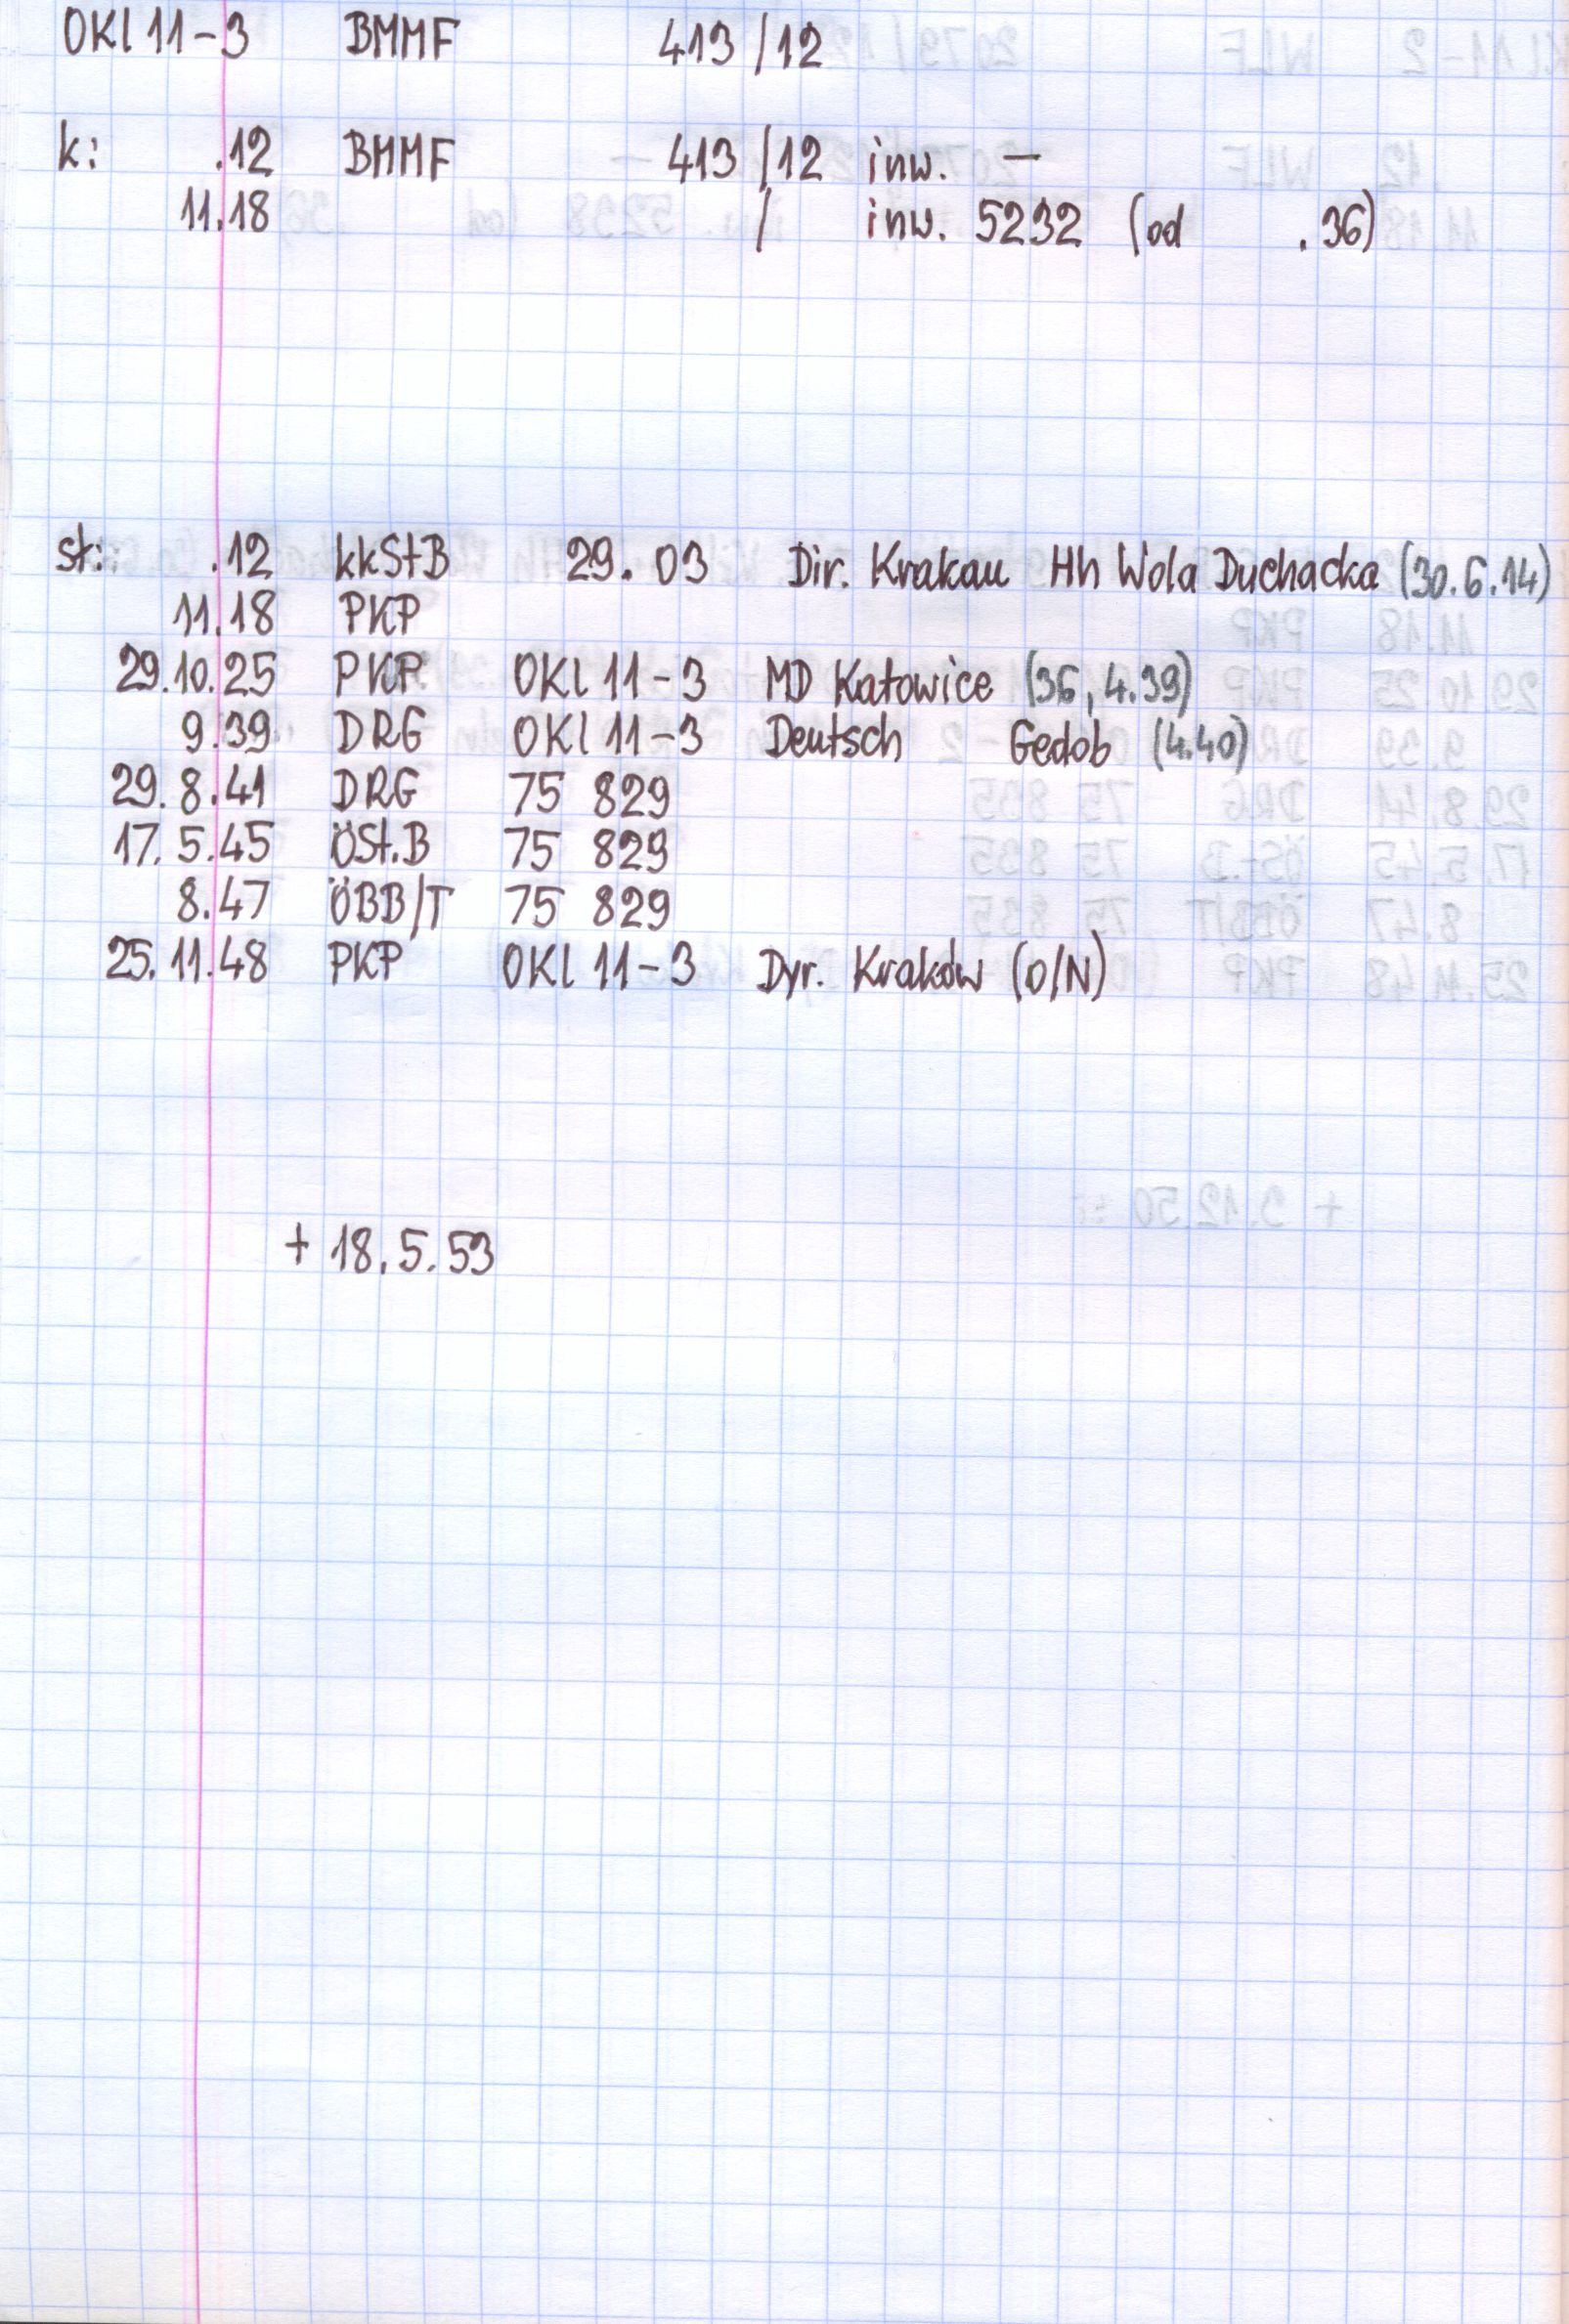 OKl 11-3 BMMF 413/12
k: .12 BMMF 413/12 inw. —
11.18 / inw. 5232 (od .36)
st: .12 kkStB 29.03 Dir. Krakau Hh Wola Duchacka (30.6.14)
11.18 PKP
29.10.25 PKP OKl 11-3 MD Katowice (36, 4.39)
9.39 DRG OKl 11-3 Deutsch Gedob (4.40)
29.8.41 DRG 75 829
17.5.45 ÖSt.B 75 829
8.47 ÖBB/T 75 829
25.11.48 PKP OKl 11-3 Dyr. Kraków (O/N)
+ 18.5.53